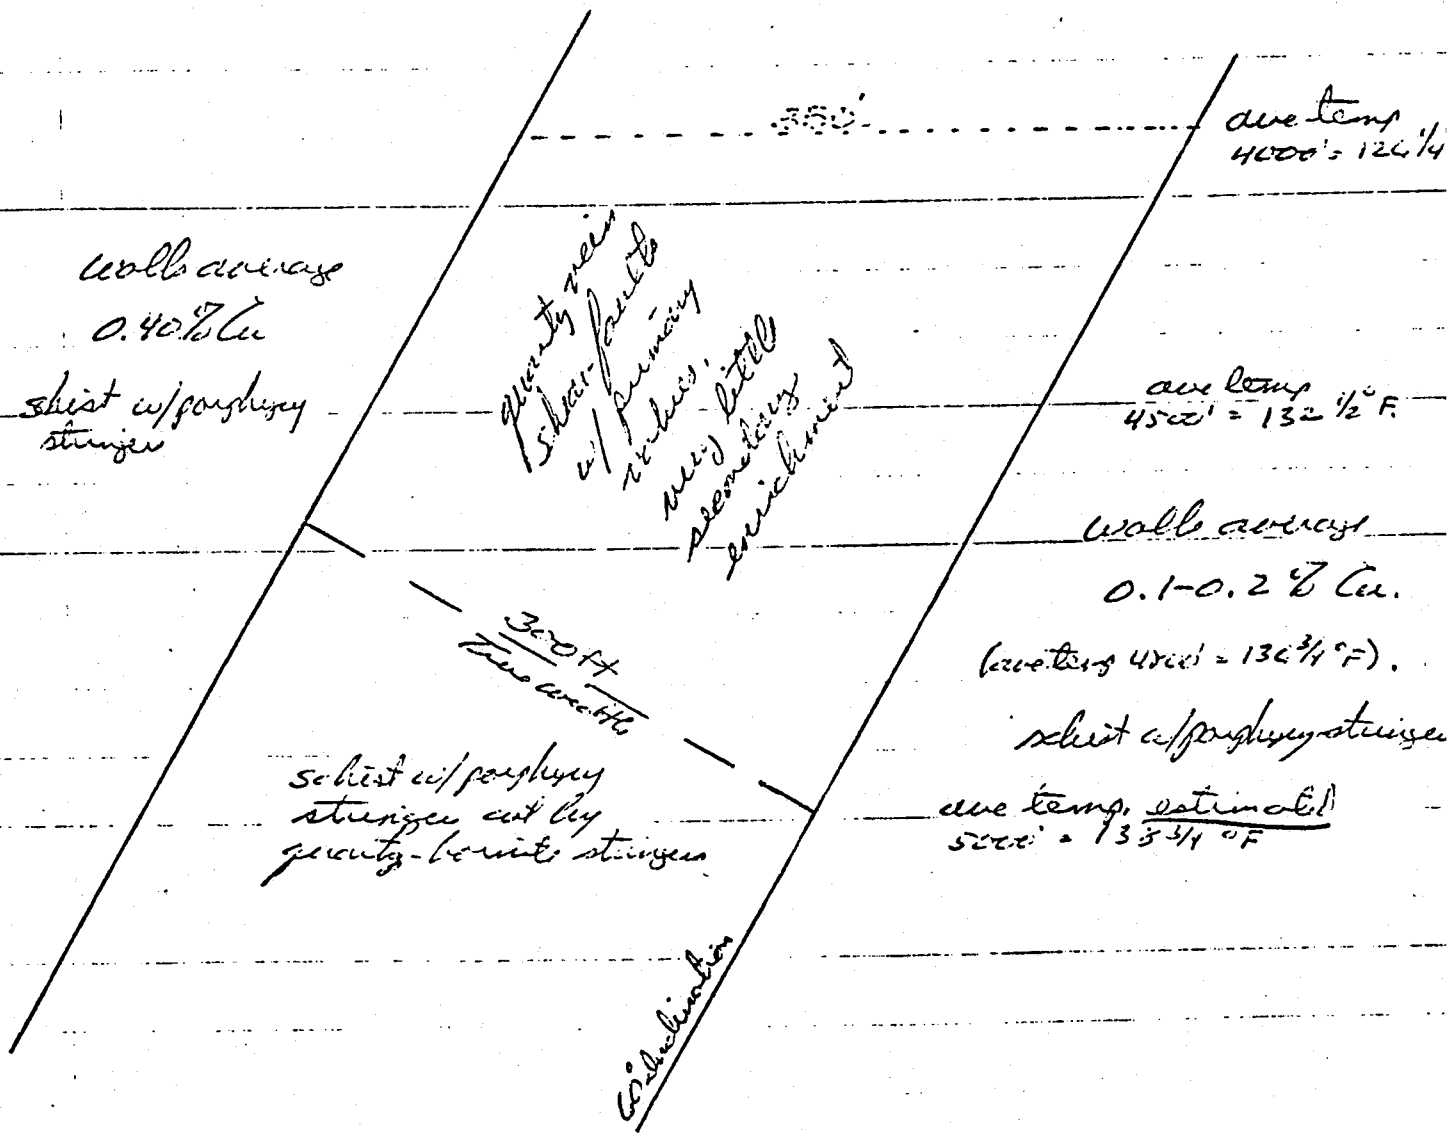 350'
ave temp
4000' = 126 1/4
wall average
0.40% Cu
shist w/porphyry
stringer
quartz vein
shear-faults
w/ primary
values.
very little
secondary
enrichment
ave temp
4500' = 132 1/2° F.
wall average
0.1-0.2 % Cu.
(ave temp 4800' = 136 3/4 °F).
schist w/porphyry stringer
ave temp. estimated
5000' = 138 3/4 °F
300 ft
True width
schist w/ porphyry
stringer cut by
quartz-bornite stringers
60° inclination